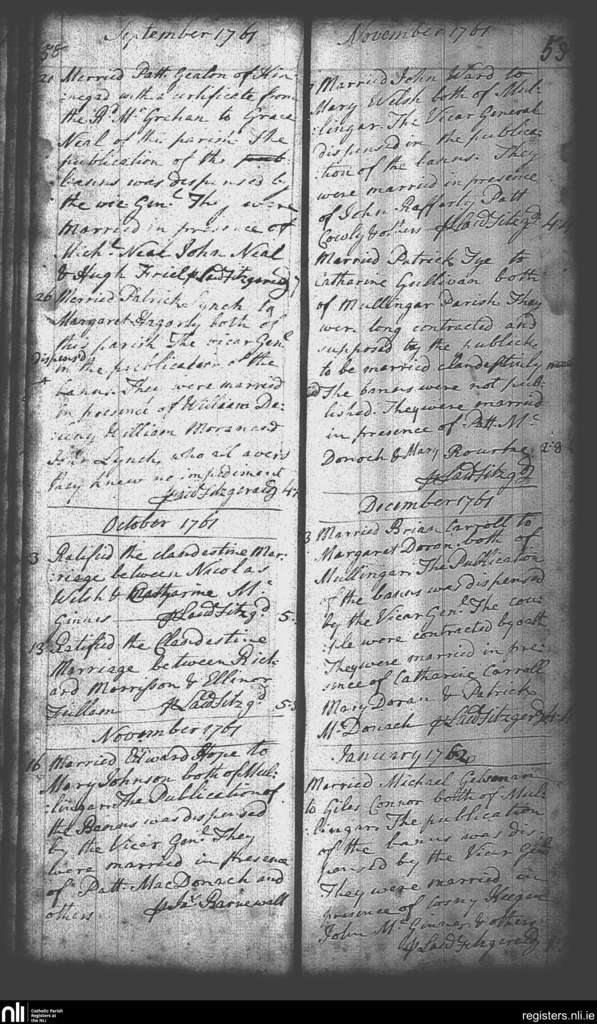 September 1761
58
21 Married Patt Gealon of Kin
:negad with a certificate from
the Rd. Mr. Grehan to Grace
Neal of this parish The
publication of the
banns was dispensed b
the vice Genl. They were
Married in presence of
Michl. Neal John Neal
& Hugh Friel
26 Married Patrick Lynch to
Margaret Hagarty both of
this parish The vicar Genl.
dispensed
in the publication of the
banns. They were married
in presence of William De:
:eny William Moran and
John Lynch, who all avers
they knew no impediment
Fitzgerald
October 1761
3 Ratified the clandestine Mar:
:riage between Nicolas
Welsh & Catharine Mc
Ginnes
13 Ratified the Clandestine
Marriage between Rich:
:ard Morrisson & Ellenor
Tullam
November 1761
16 Married Edward Hope to
Mary Johnson both of Mul:
:lingar. The Publication of
the Banns was dispensed
by the Vicar Genl. They
were married in presence
of Patt MacDonach and
others Barnewall
November 1761
59
Married John Ward to
Mary Welsh both of Mul:
:lingar. The Vicar General
dispensed in the publica:
:tion of the banns. They
were married in presence
of John Rafferty Patt
Cowly & others
Married Patrick Tye to
Catharine Gullivan both
of Mullingar Parish They
were long contracted and
supposed by the publick
to be married clandestinly
The banns were not pub:
:lished. They were married
in presence of Patt Mc
Donoch & Mary Rourke
December 1761
3 Married Brian Carroll to
Margaret Doran both of
Mullingar. The Publication
of the banns was dispensed
by the Vicar Genl. The cou
:ple were contracted by oath
They were married in pre:
:sence of Catharine Carroll
Mary Doran & Patrick
Mc Donach
January 1762
Married Michael
to Giles Connor both of Mul
:lingar. The publication
of the banns was dis
:pensed by the Vicar Genl.
They were married in
presence of
John Mc & others
nli Catholic Parish
Registers at
the NLI
registers.nli.ie